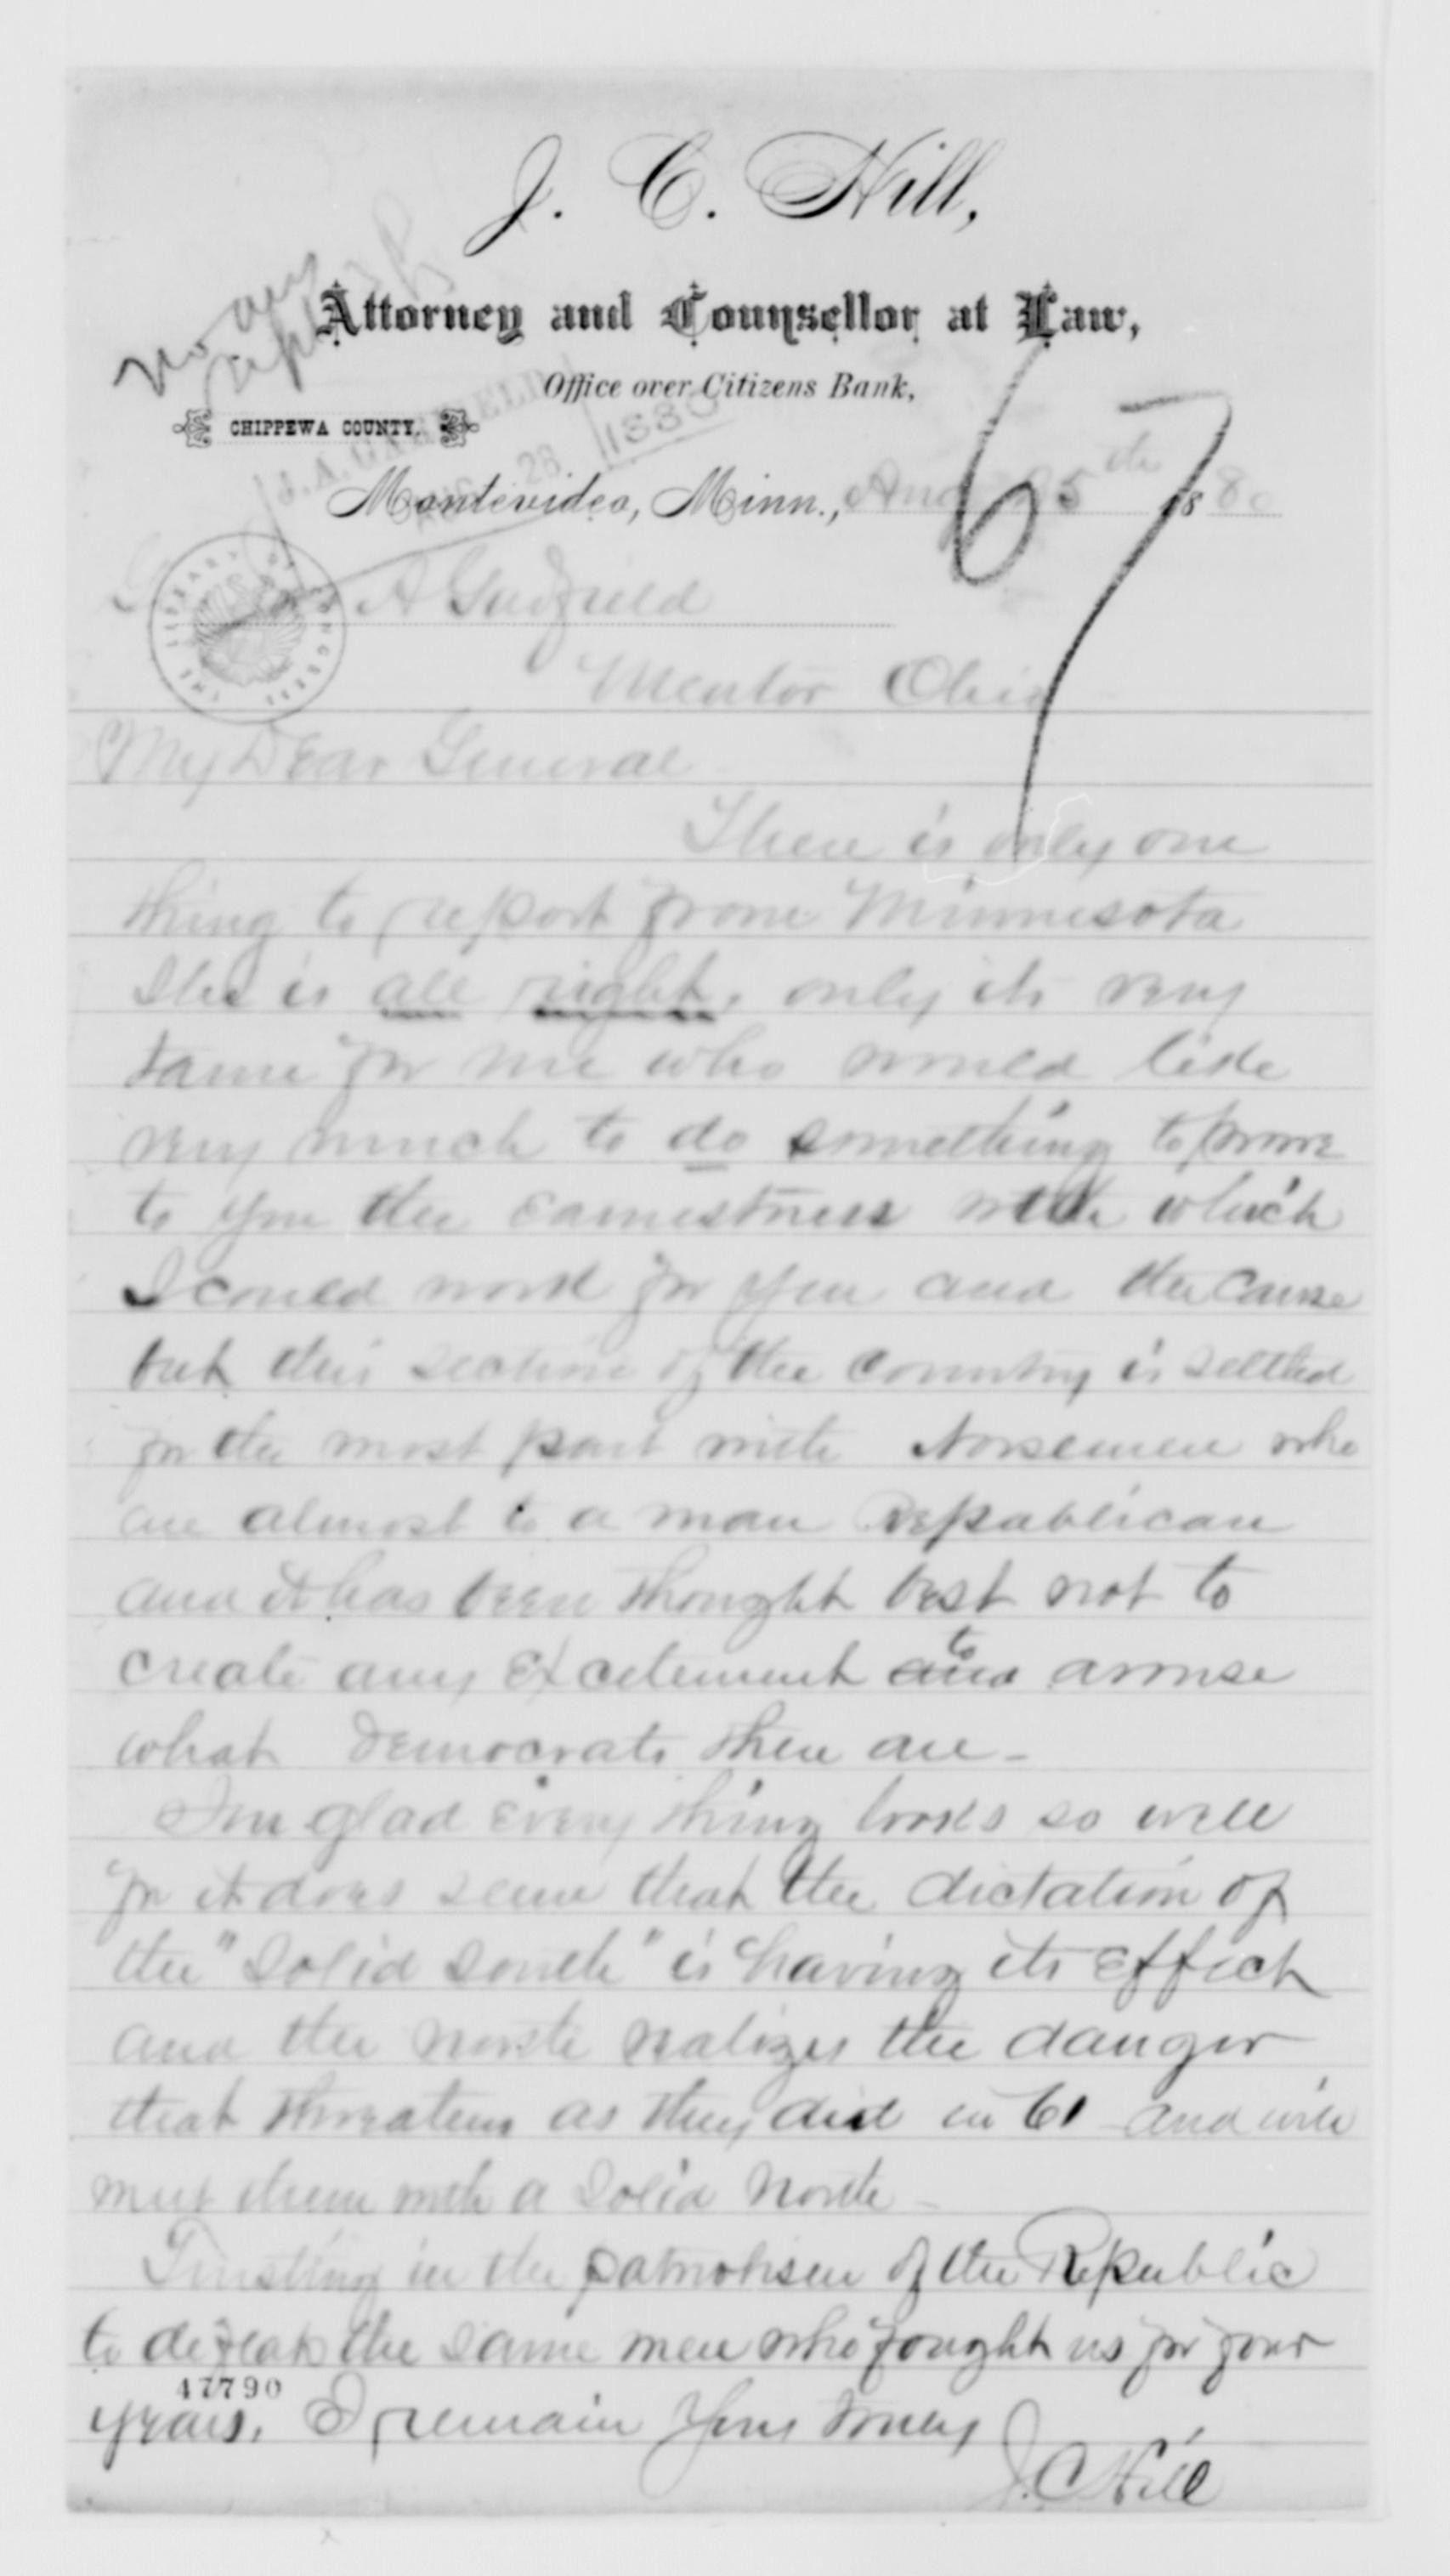 J. C. Hill,
Attorney and Counsellor at Law,
Office over Citizens Bank,
CHIPPEWA COUNTY.
J. A. GARFIELD
28 1880
Montevideo, Minn., Aug 25th 1880
67
no
THE LIBRARY OF CONGRESS
A Garfield
Mentor Ohio
My Dear General
There is only one
thing to report from Minnesota
She is all right, only its very
tame for me who would like
very much to do something to prove
to you the earnestness with which
I could work for you and the cause
but this section of the country is settled
for the most part with Norsemen who
are almost to a man Republican
and it has been thought best not to
create any excitement and to arouse
what Democrats there are -
Im glad every thing looks so well
for it does seem that the dictation of
the "Solid South" is having its effect
and the North realizes the danger
that threatens as they did in 61 and will
meet them with a Solid North -
Trusting in the patriotism of the Republic
to defeat the same men who fought us for four
47790
years. I remain Yours truly
J. C. Hill